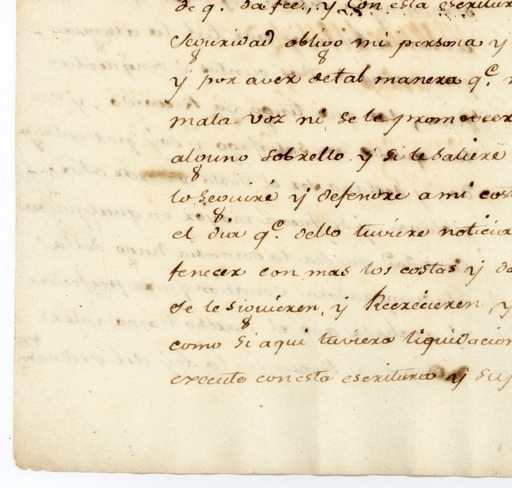 de q.ᵉ da fee, y con esta escritur
seguridad obligo mi persona y
y por aver de tal manera q.ᵉ
mala voz ni se le promover
alguno sobrello y si le saliere
lo seguiré y defendre a mi cos
el dia q.ᵉ dello tuviere noticia
fenecer con mas los costas y
se le siguieren, y Recrecieren, y
como si aqui tuviera liquidacion
execute con esta escritura y su